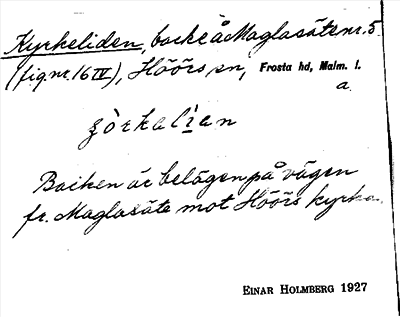 Kyrkeliden, backe å Maglasäte nr. 5
(fig nr. 16 IV), Höörs sn, Frosta hd, Malm. l.
a.
Backen är belägen på vägen
fr. Maglasäte mot Höörs kyrka.
EINAR HOLMBERG 1927